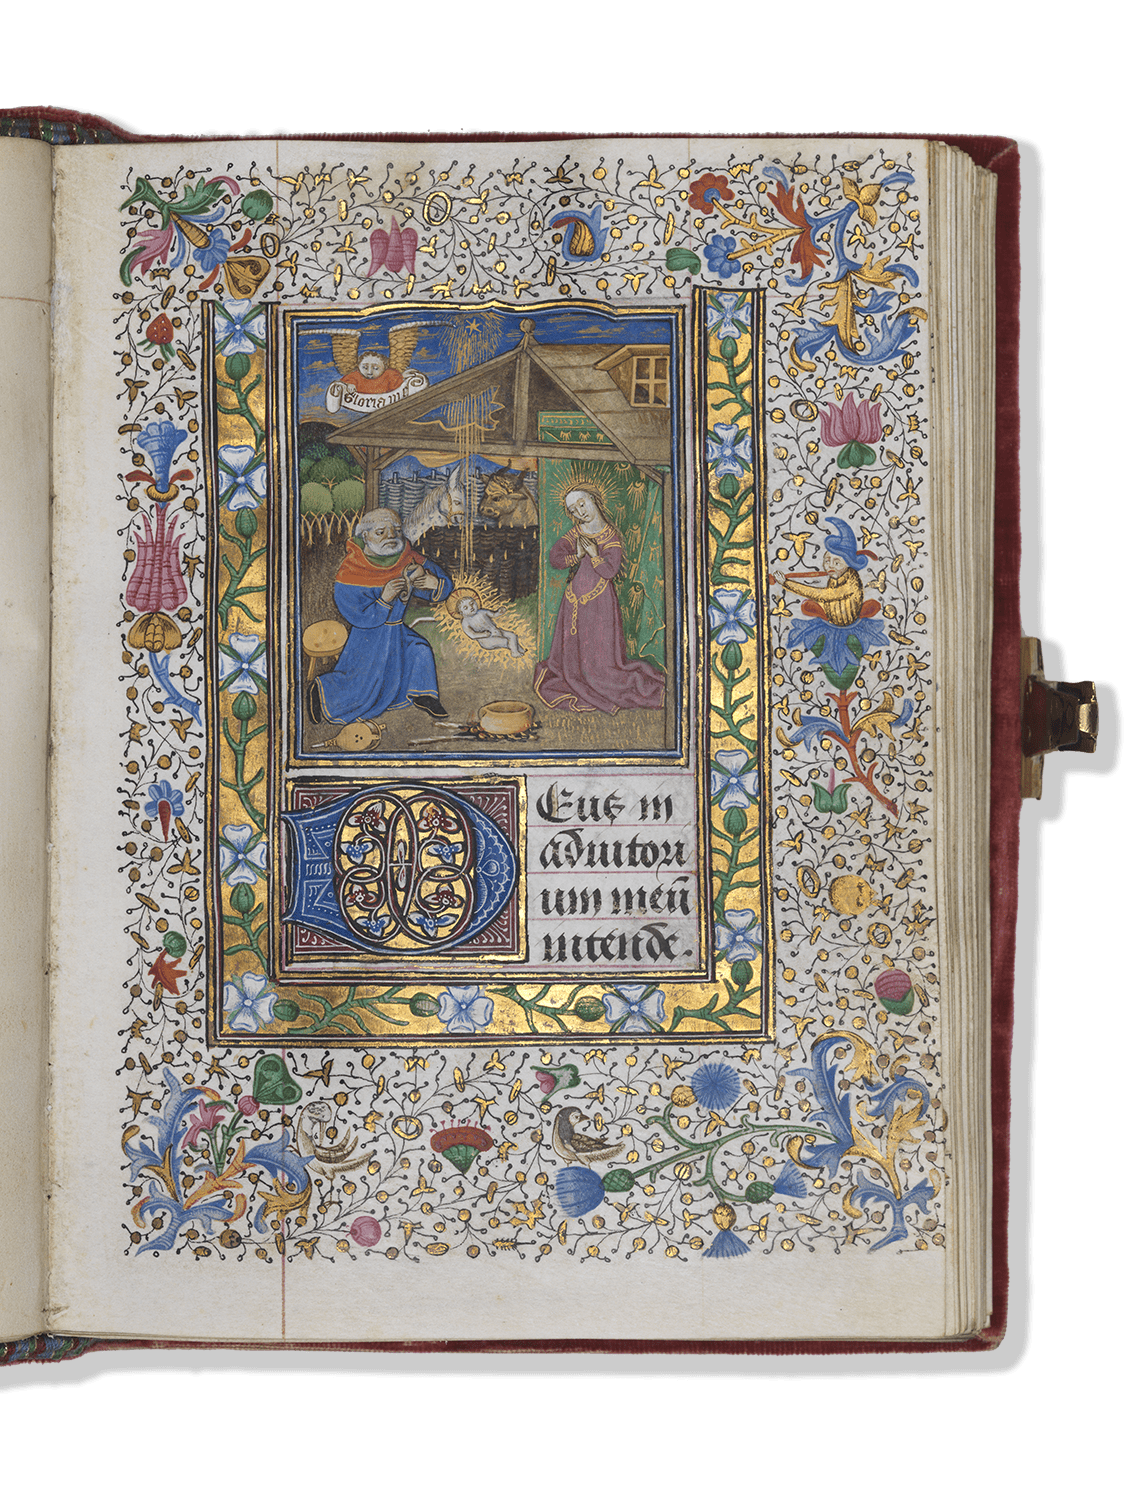 Gloria in e
DEus in
adiutori
um meū
intende.